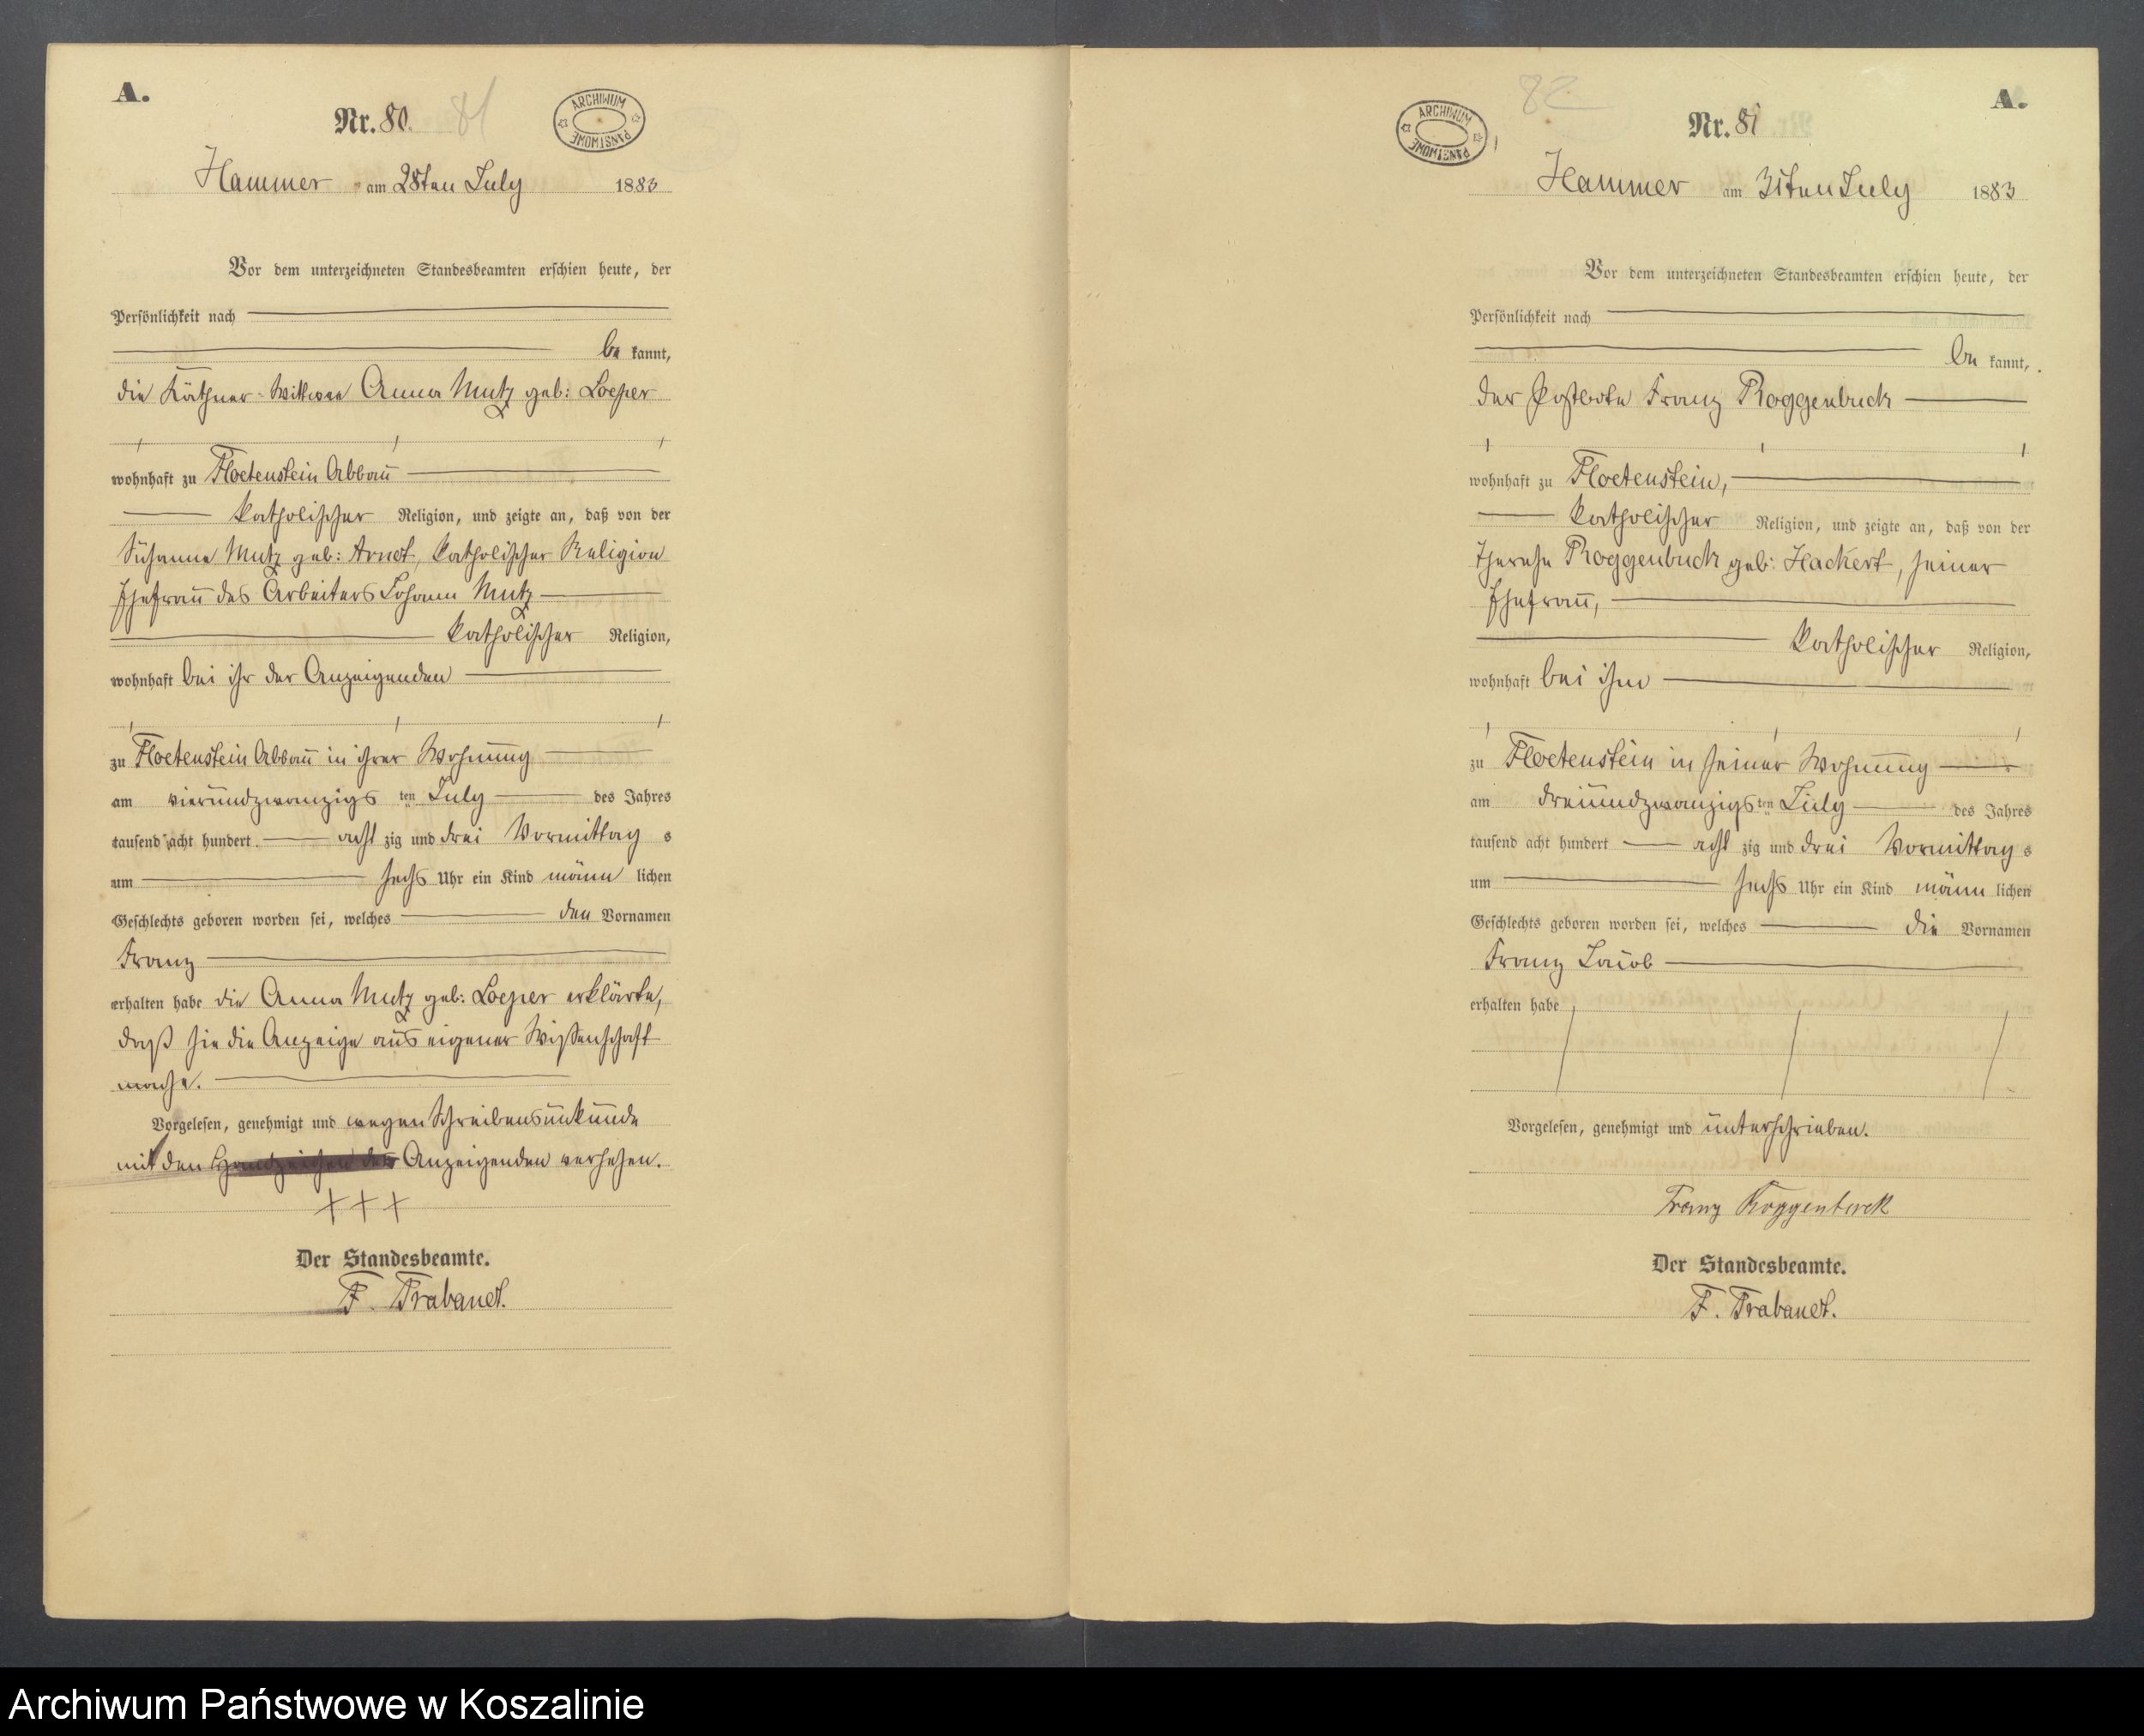 A.
Nr. 80.
81
ARCHIWUM PAŃSTWOWE
Hammer am 28ten July 1883
Vor dem unterzeichneten Standesbeamten erschien heute, der
Persönlichkeit nach
be kannt,
die Käthner-Wittwee Anna Mutz geb: Loeper
wohnhaft zu Floetenstein Abbau
katholischer Religion, und zeigte an, daß von der
Susanna Mutz geb: Arndt, katholischer Religion
Ehefrau des Arbeiters Johann Mutz
katholischer Religion,
wohnhaft bei ihr der Anzeigenden
zu Floetenstein Abbau in ihrer Wohnung
am vierundzwanzigs ten July des Jahres
tausend acht hundert acht zig und drei Vormittag s
um sechs Uhr ein Kind männ lichen
Geschlechts geboren worden sei, welches den Vornamen
Franz
erhalten habe die Anna Mutz geb: Loeper erklärte,
daß sie die Anzeige aus eigener Wissenschaft
mache.
Vorgelesen, genehmigt und wegen Schreibensunkunde
mit den Handzeichen der Anzeigenden versehen.
+++
Der Standesbeamte.
F. Trabandt.
A.
82
Nr. 81
ARCHIWUM PAŃSTWOWE
Hammer am 31ten July 1883
Vor dem unterzeichneten Standesbeamten erschien heute, der
Persönlichkeit nach
be kannt,
der Postbote Franz Roggenbuck
wohnhaft zu Floetenstein,
katholischer Religion, und zeigte an, daß von der
Therese Roggenbuck geb: Hackert, seiner
Ehefrau,
katholischer Religion,
wohnhaft bei ihm
zu Floetenstein in seiner Wohnung
am dreiundzwanzigs ten July des Jahres
tausend acht hundert acht zig und drei Vormittag s
um sechs Uhr ein Kind männ lichen
Geschlechts geboren worden sei, welches die Vornamen
Franz Jacob
erhalten habe
Vorgelesen, genehmigt und unterschrieben.
Franz Roggenbuck
Der Standesbeamte.
F. Trabandt.
Archiwum Państwowe w Koszalinie